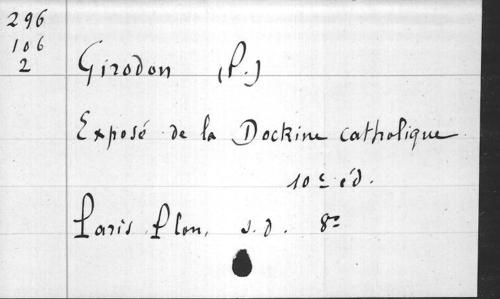 296
106
2
Girodon (P.)
Exposé de la Doctrine catholique
10e éd.
Paris Plon, s.d. 8º